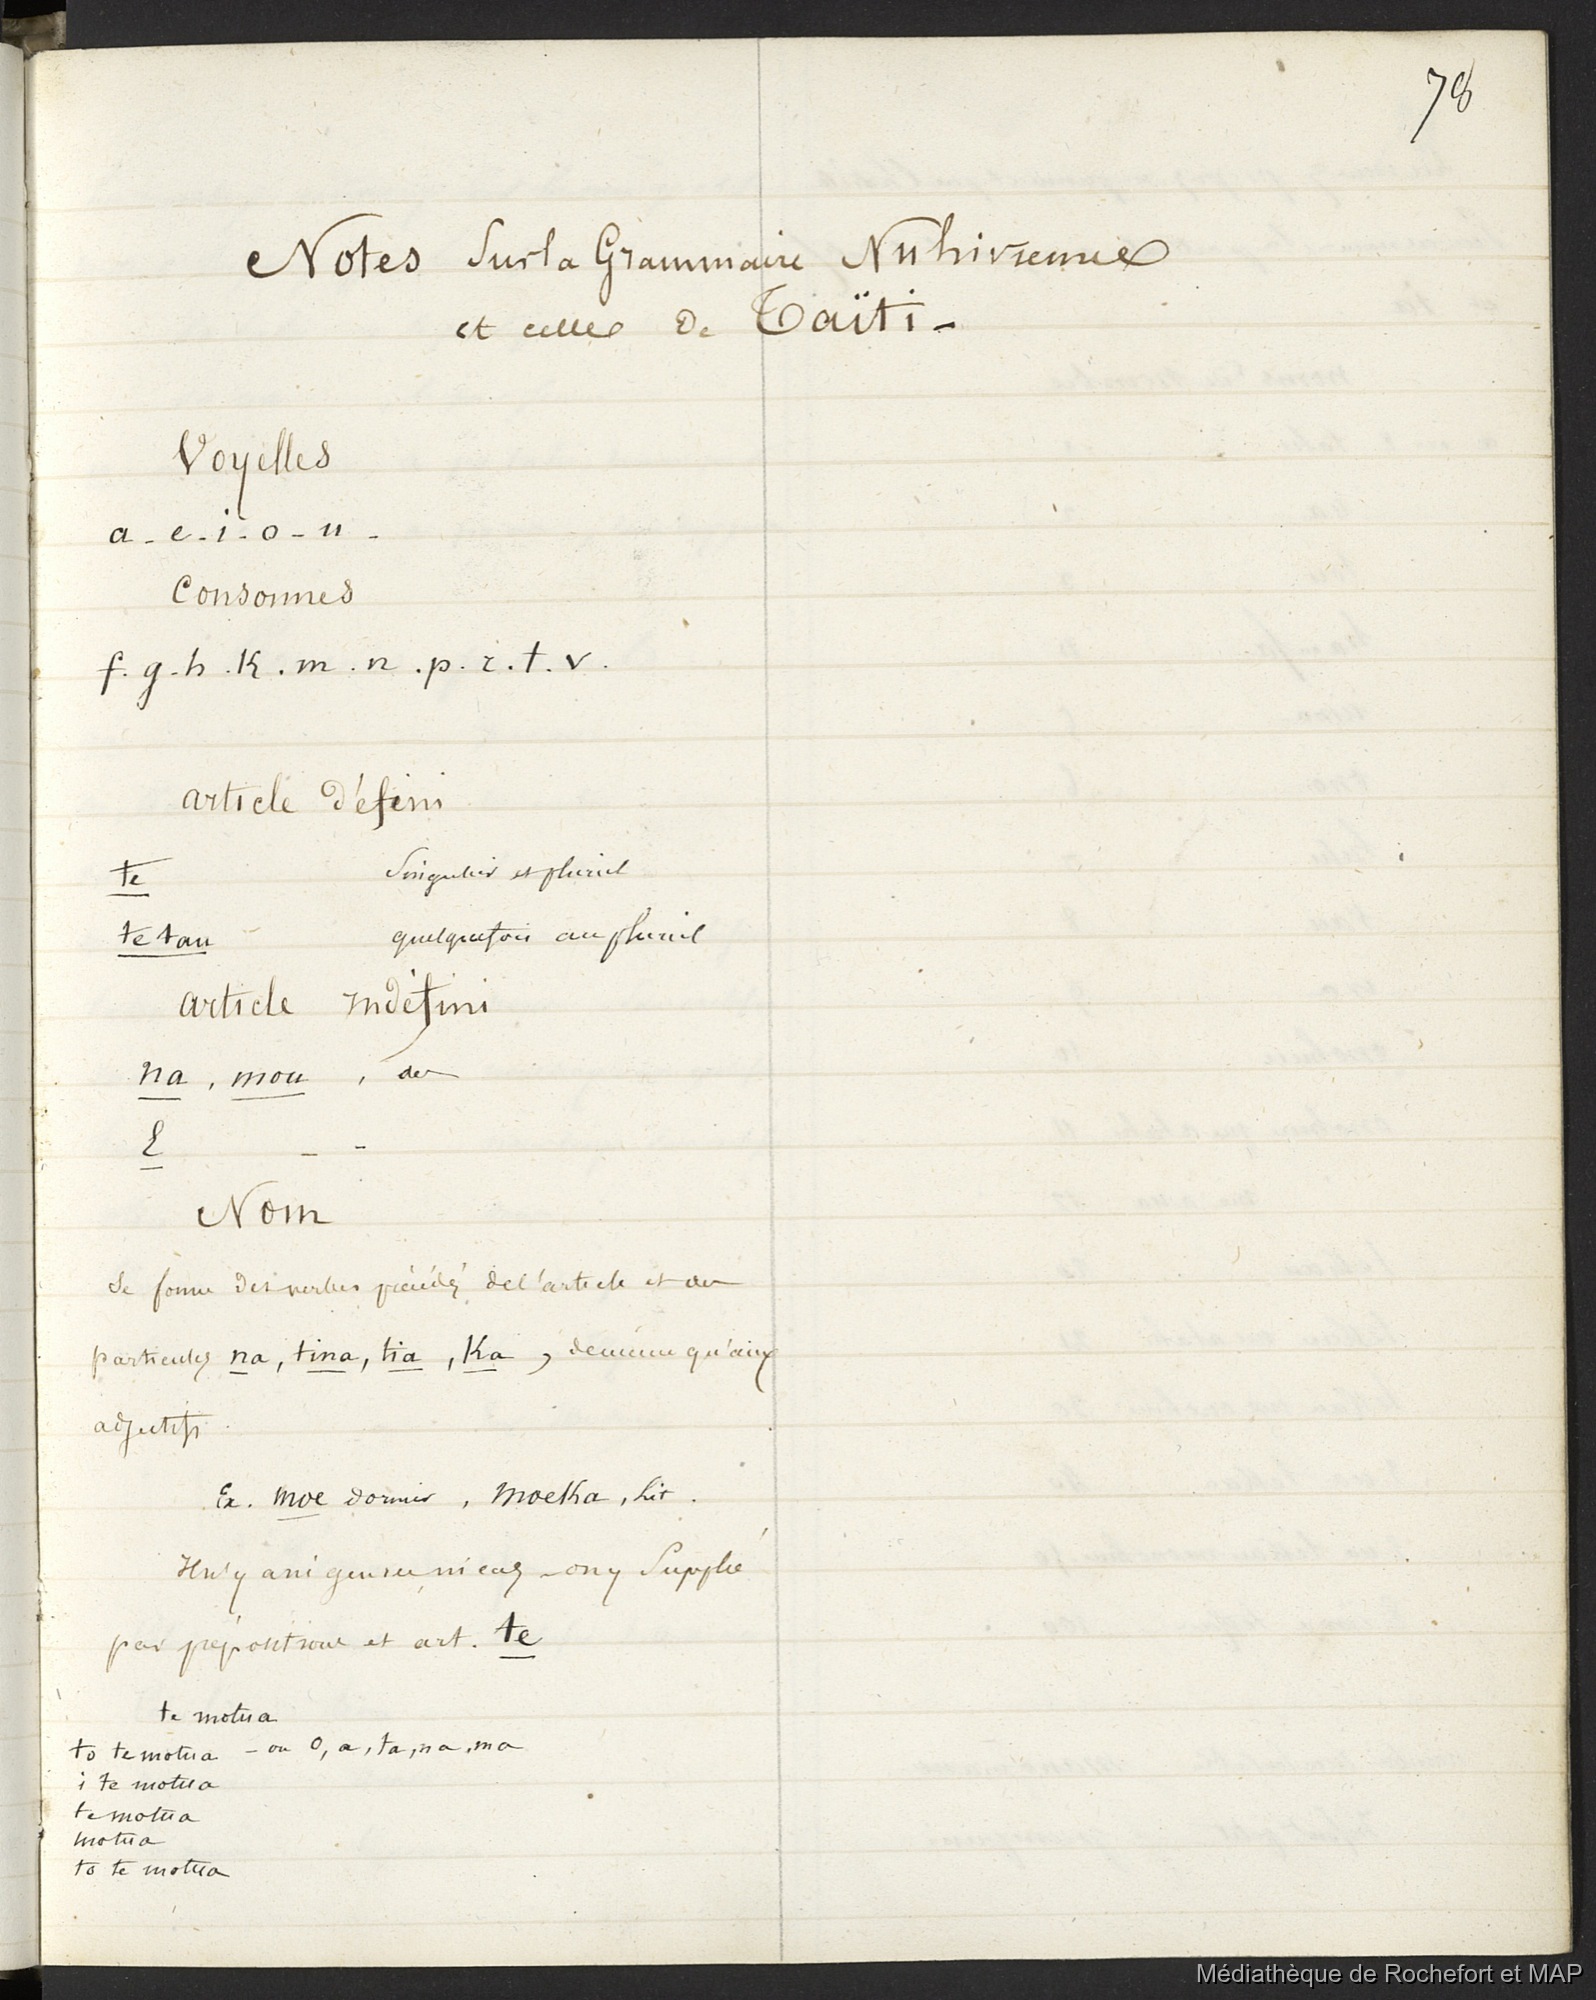 78
Notes sur la Grammaire Nuhivienne
et celle de Taïti -
Voyelles
a - e - i - o - u -
Consonnes
f. g. h. K. m. n. p. r. t. v.
article défini
te singulier et pluriel
te tau quelquefois au pluriel
article indéfini
na, mou, des
E - -
Nom
Se forme des verbes précédés de l'article et des
particules na, tina, tia, Ka, de même qu'aux
adjectifs.
Ex. moe dormir, moeka, lit.
Il n'y a ni genre ni cas - on y supplée
par prépositions et art. te
te motua
to te motua - ou o, a, ta, na, ma
i te motua
te motua
motua
to te motua
Médiathèque de Rochefort et MAP